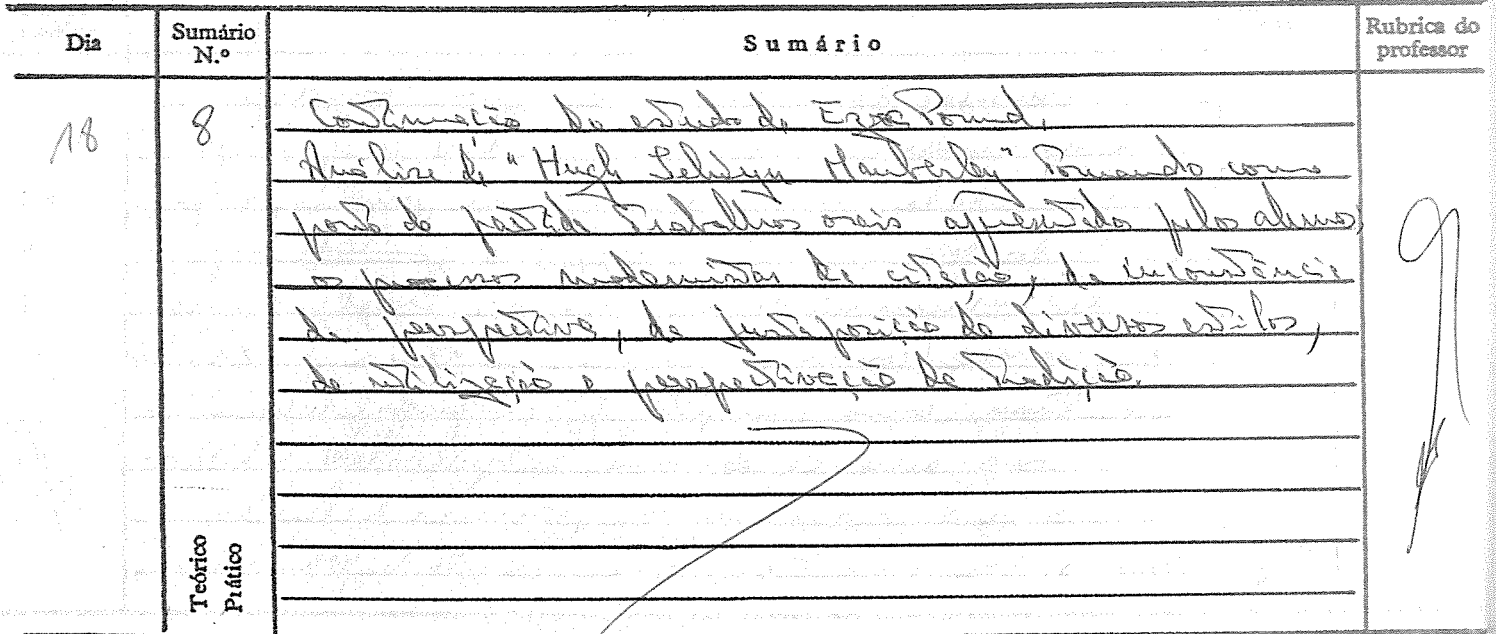 Dia
Sumário N.º
Sumário
Rubrica do professor
18
8
Continuação do estudo de Ezra Pound.
Análise de "Hugh Selwyn Mauberley" tomando como
ponto de partida trabalhos orais apresentados pelos alunos,
os processos modernistas de citação, de inconstância
de perspectiva, de justaposição de diversos estilos,
de utilização e perspectivação da tradição.
Teórico
Prático